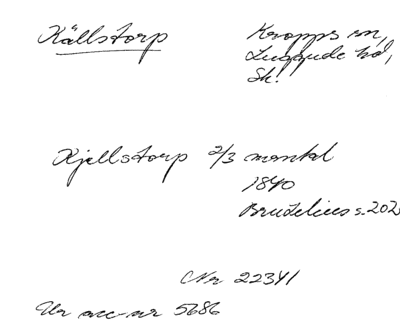 Källstorp
Kropps sn,
Luggude hd,
Sk.
Kjellstorp 2/3 mantal
1840
Bruzelius s. 202
Nr 22341
Ur acc-nr 5686